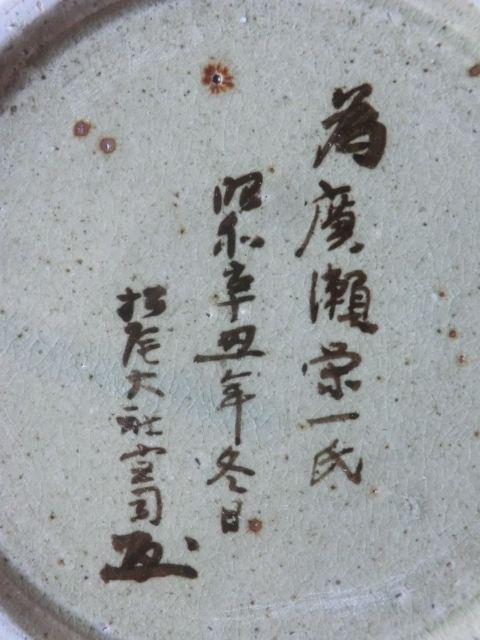 為廣瀬栄一氏
昭和辛丑年冬日
松尾大社宮司